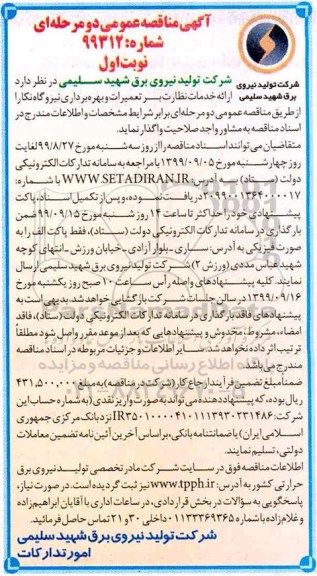 آگهی مناقصه عمومی دو مرحله‌ای
شماره: ۹۹۳۱۲
نوبت اول
شرکت تولید نیروی
برق شهید سلیمی
شرکت تولید نیروی برق شهید سلیمی در نظر دارد
ارائه خدمات نظارت بر تعمیرات و بهره برداری نیروگاه نکا را
از طریق مناقصه عمومی دو مرحله‌ای برابر شرایط مشخصات و اطلاعات مندرج در
اسناد مناقصه به مشاور واجد صلاحیت واگذار نماید.
متقاضیان می توانند اسناد مناقصه را از روز سه شنبه مورخ ۹۹/۸/۲۷ لغایت
روز چهارشنبه مورخ ۱۳۹۹/۰۹/۰۵ با مراجعه به سامانه تدارکات الکترونیکی
دولت (ستاد) به آدرس: WWW.SETADIRAN.IR با شماره:
۲۰۹۹۰۰۱۳۶۴۰۰۰۰۱۷ دریافت نموده و پس از تکمیل اسناد، پاکت
پیشنهادی خود را حداکثر تا ساعت ۱۴ روز شنبه مورخ ۹۹/۰۹/۱۵ ضمن
بارگذاری در سامانه تدارکات الکترونیکی دولت (ستاد)، فقط پاکت الف را به
صورت فیزیکی به آدرس: ساری - بلوار آزادی - خیابان ورزش - انتهای کوچه
شهید عباس مددی (ورزش ۲) شرکت تولید نیروی برق شهید سلیمی ارسال
نمایند. کلیه پیشنهادهای واصله رأس ساعت ۱۰ صبح روز یکشنبه مورخ
۱۳۹۹/۰۹/۱۶ در سالن جلسات شرکت بازگشایی خواهد شد. بدیهی است به
پیشنهادهای فاقد بارگذاری در سامانه تدارکات الکترونیکی دولت (ستاد)، فاقد
امضاء، مشروط، مخدوش و پیشنهادهایی که بعد از موعد مقرر واصل شود مطلقاً
ترتیب اثر داده نخواهد شد. سایر اطلاعات و جزئیات مربوطه در اسناد مناقصه
مندرج می باشد.
ضمناً مبلغ تضمین فرآیند ارجاع کار (شرکت در مناقصه) به مبلغ ۴۳۱,۵۰۰,۰۰۰
ریال بوده، که پیشنهاددهنده می تواند به صورت واریز نقدی (به شماره حساب این
شرکت: IR۳۵۰۱۰۰۰۰۴۱۰۱۱۱۳۹۳۰۲۳۱۴۸۶ نزد بانک مرکزی جمهوری
اسلامی ایران) یا ضمانتنامه بانکی، براساس آخرین آئین نامه تضمین معاملات
دولتی، تسلیم نمایند.
اطلاعات مناقصه فوق در سایت شرکت مادر تخصصی تولید نیروی برق
حرارتی کشور به آدرس: www.tpph.ir نیز ثبت گردیده است. در صورت نیاز،
پاسخگویی به سؤالات در بخش قراردادی، در ساعات اداری با آقایان ابراهیم زاده
و غلام زاده با شماره ۰۱۱۳۳۳۶۹۳۶۵ داخلی ۳۰ و ۲۱ تماس حاصل فرمائید.
شرکت تولید نیروی برق شهید سلیمی
امور تدارکات